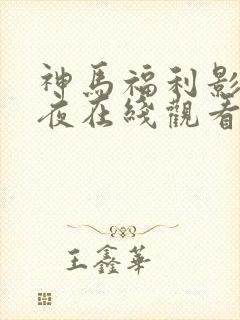 神馬福利影
夜在綫觀看
王鑫華